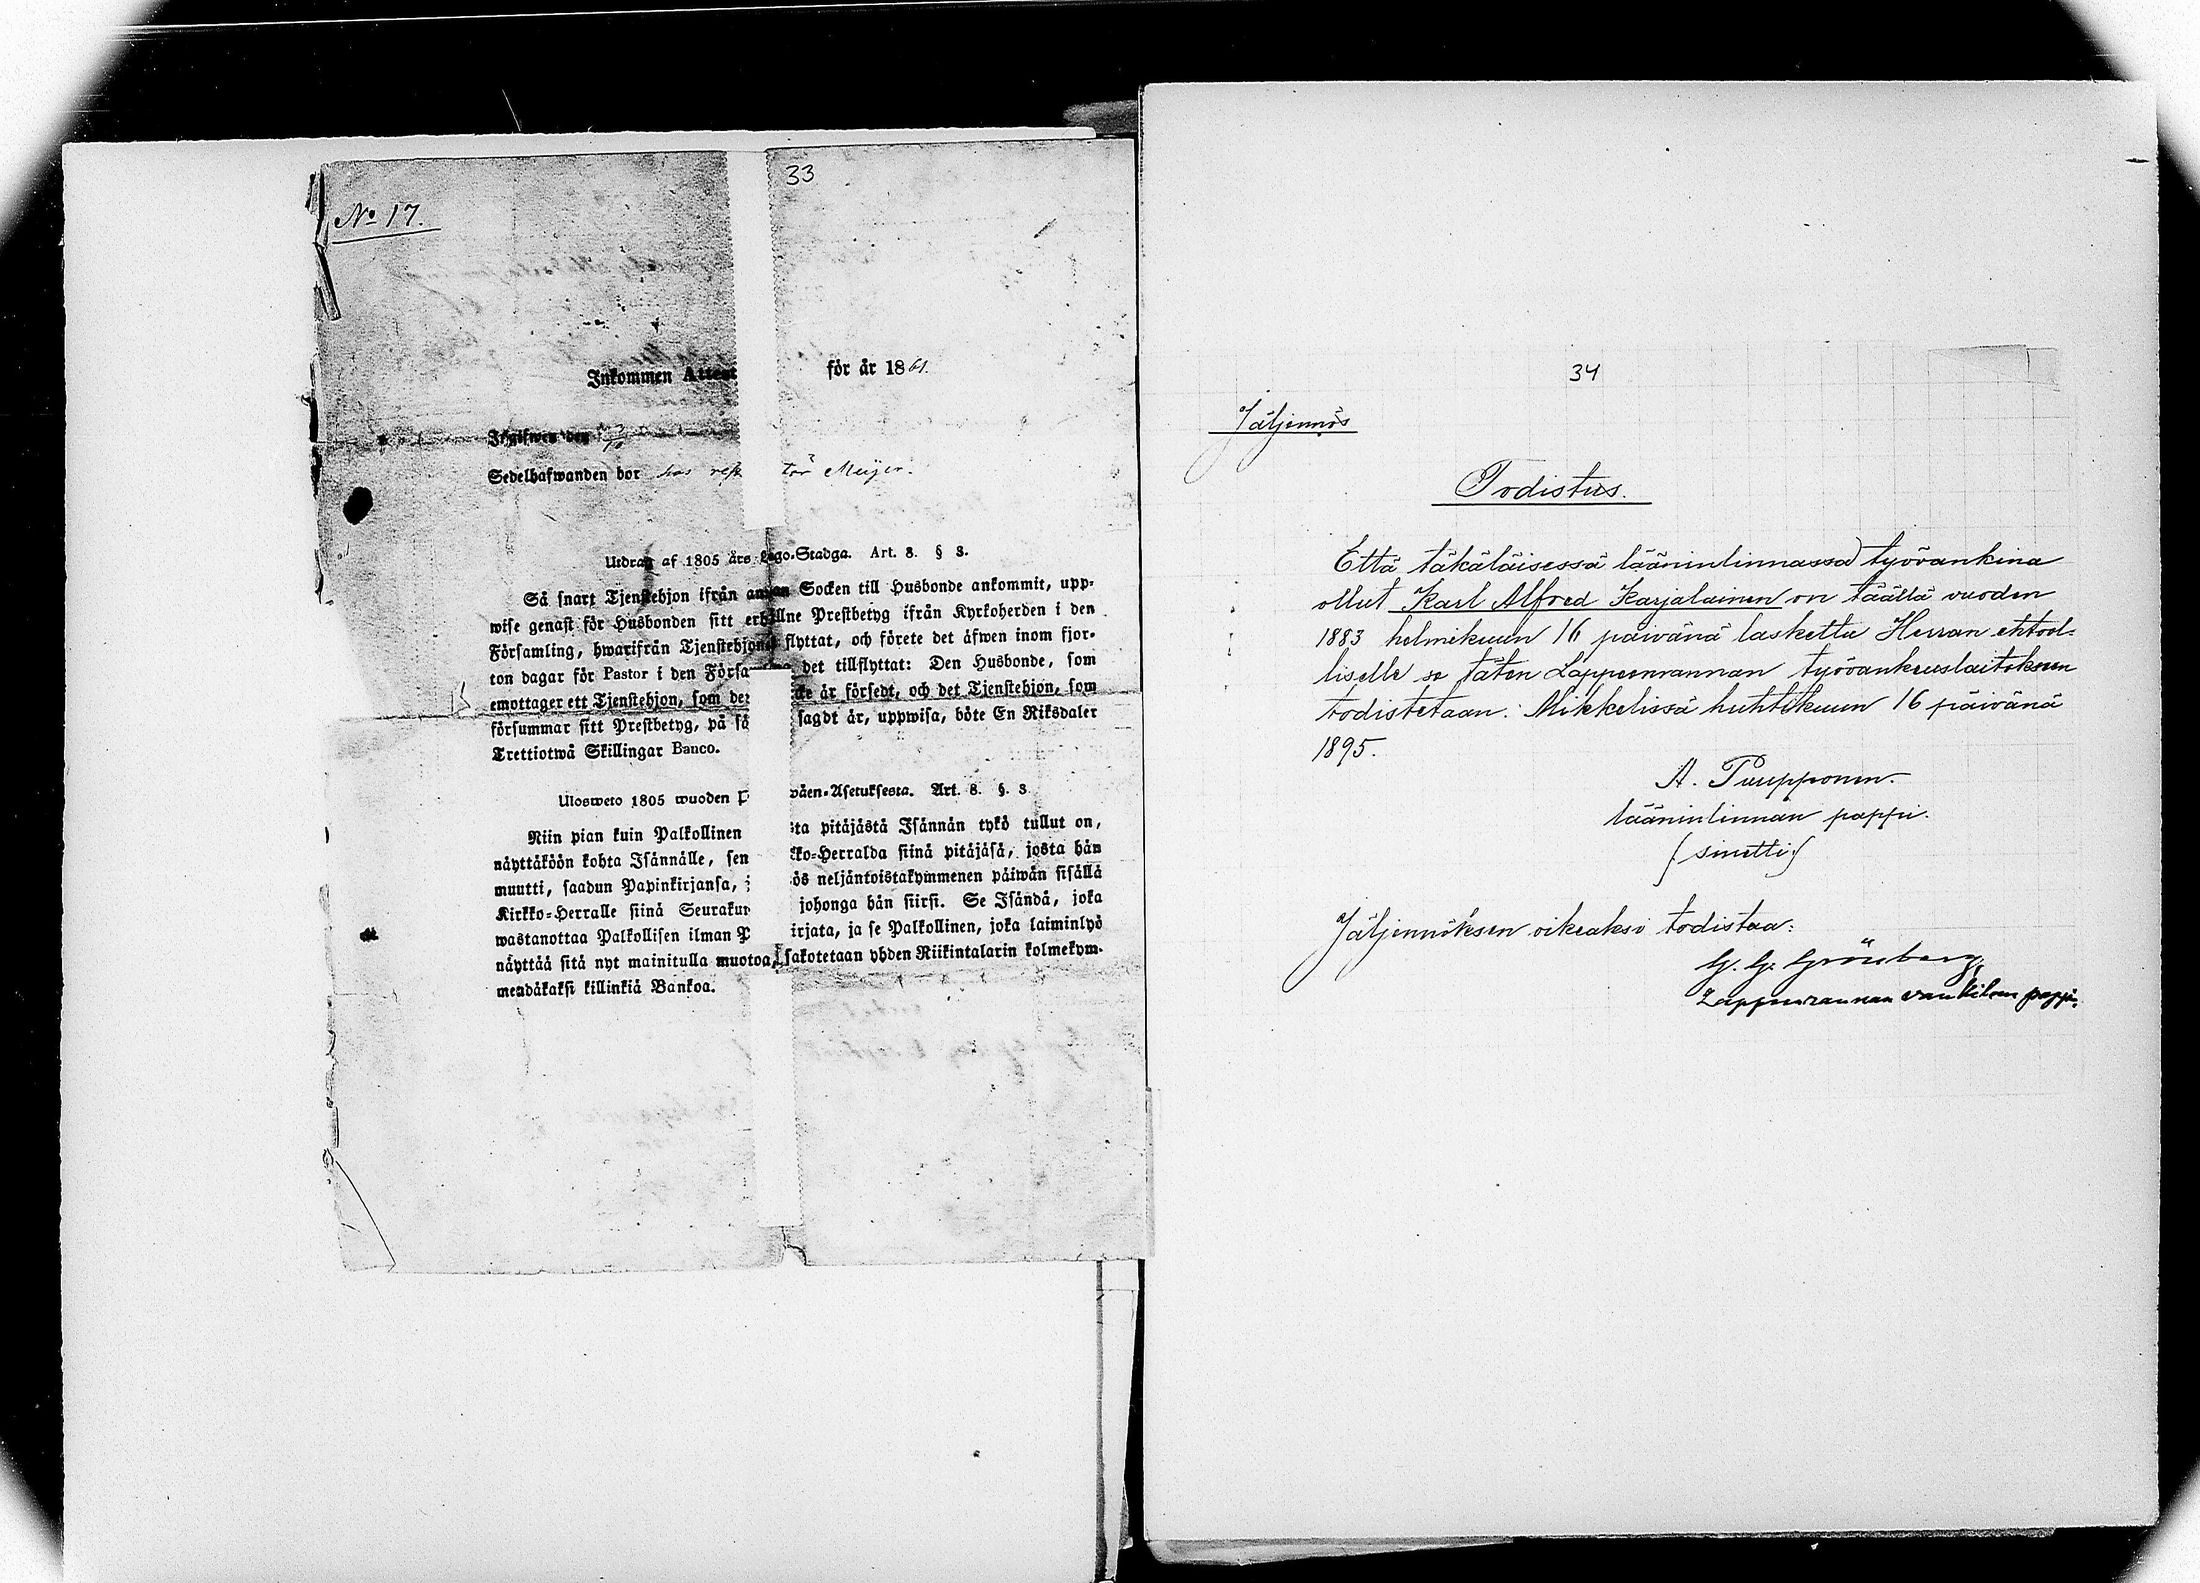 33
No 17.
Inkommen Attest för år 1861.
Sedelhafwanden bor hos Meijer.
Utdrag af 1805 års Lego-Stadga. Art. 8. § 3.
Så snart Tjenstehjon ifrån annan Socken till Husbonde ankommit, upp-
wise genast för Husbonden sitt erhållne Prestbetyg ifrån Kyrkoherden i den
Församling, hwarifrån Tjenstehjonet flyttat, och förete det äfwen inom fjor-
ton dagar för Pastor i den Försa det tillflyttat: Den Husbonde, som
emottager ett Tjenstehjon, som der cke är försedt, och det Tjenstehjon, som
försummar sitt Prestbetyg, på så sagdt är, uppwisa, böte En Riksdaler
Trettiotwå Skillingar Banco.
Ulosweto 1805 wuoden P wäen-Asetuksesta. Art. 8. §. 3.
Niin pian kuin Palkollinen sta pitäjästä Isännän tykö tullut on,
näyttäköön kohta Isännälle, sen ko-Herralda siinä pitäjäsä, josta hän
muutti, saadun Papinkirjansa, ös neljäntoistakymmenen päiwän sisällä
Kirkko-Herralle siinä Seurakun johonga hän siirsi. Se Isändä, joka
wastanottaa Palkollisen ilman P irjata, ja se Palkollinen, joka laiminlyö
näyttää sitä nyt mainitulla muotoa, sakotetaan yhden Riikintalarin kolmekym-
mendäkaksi killinkiä Bankoa.
34
Jäljennös
Todistus.
Että täkäläisessä lääninlinnassa työvankina
ollut Karl Alfred Karjalainen on täällä vuoden
1883 helmikuun 16 päivänä laskettu Herran ehtool-
liselle se täten Lappeenrannan työvankeuslaitokseen
todistetaan. Mikkelissä huhtikuun 16 päivänä
1895.
A. Puupponen.
lääninlinnan pappi.
(sinetti)
Jäljennöksen oikeaksi todistaa:
G. G. Grönberg,
Lappeenrannan vankilan pappi.